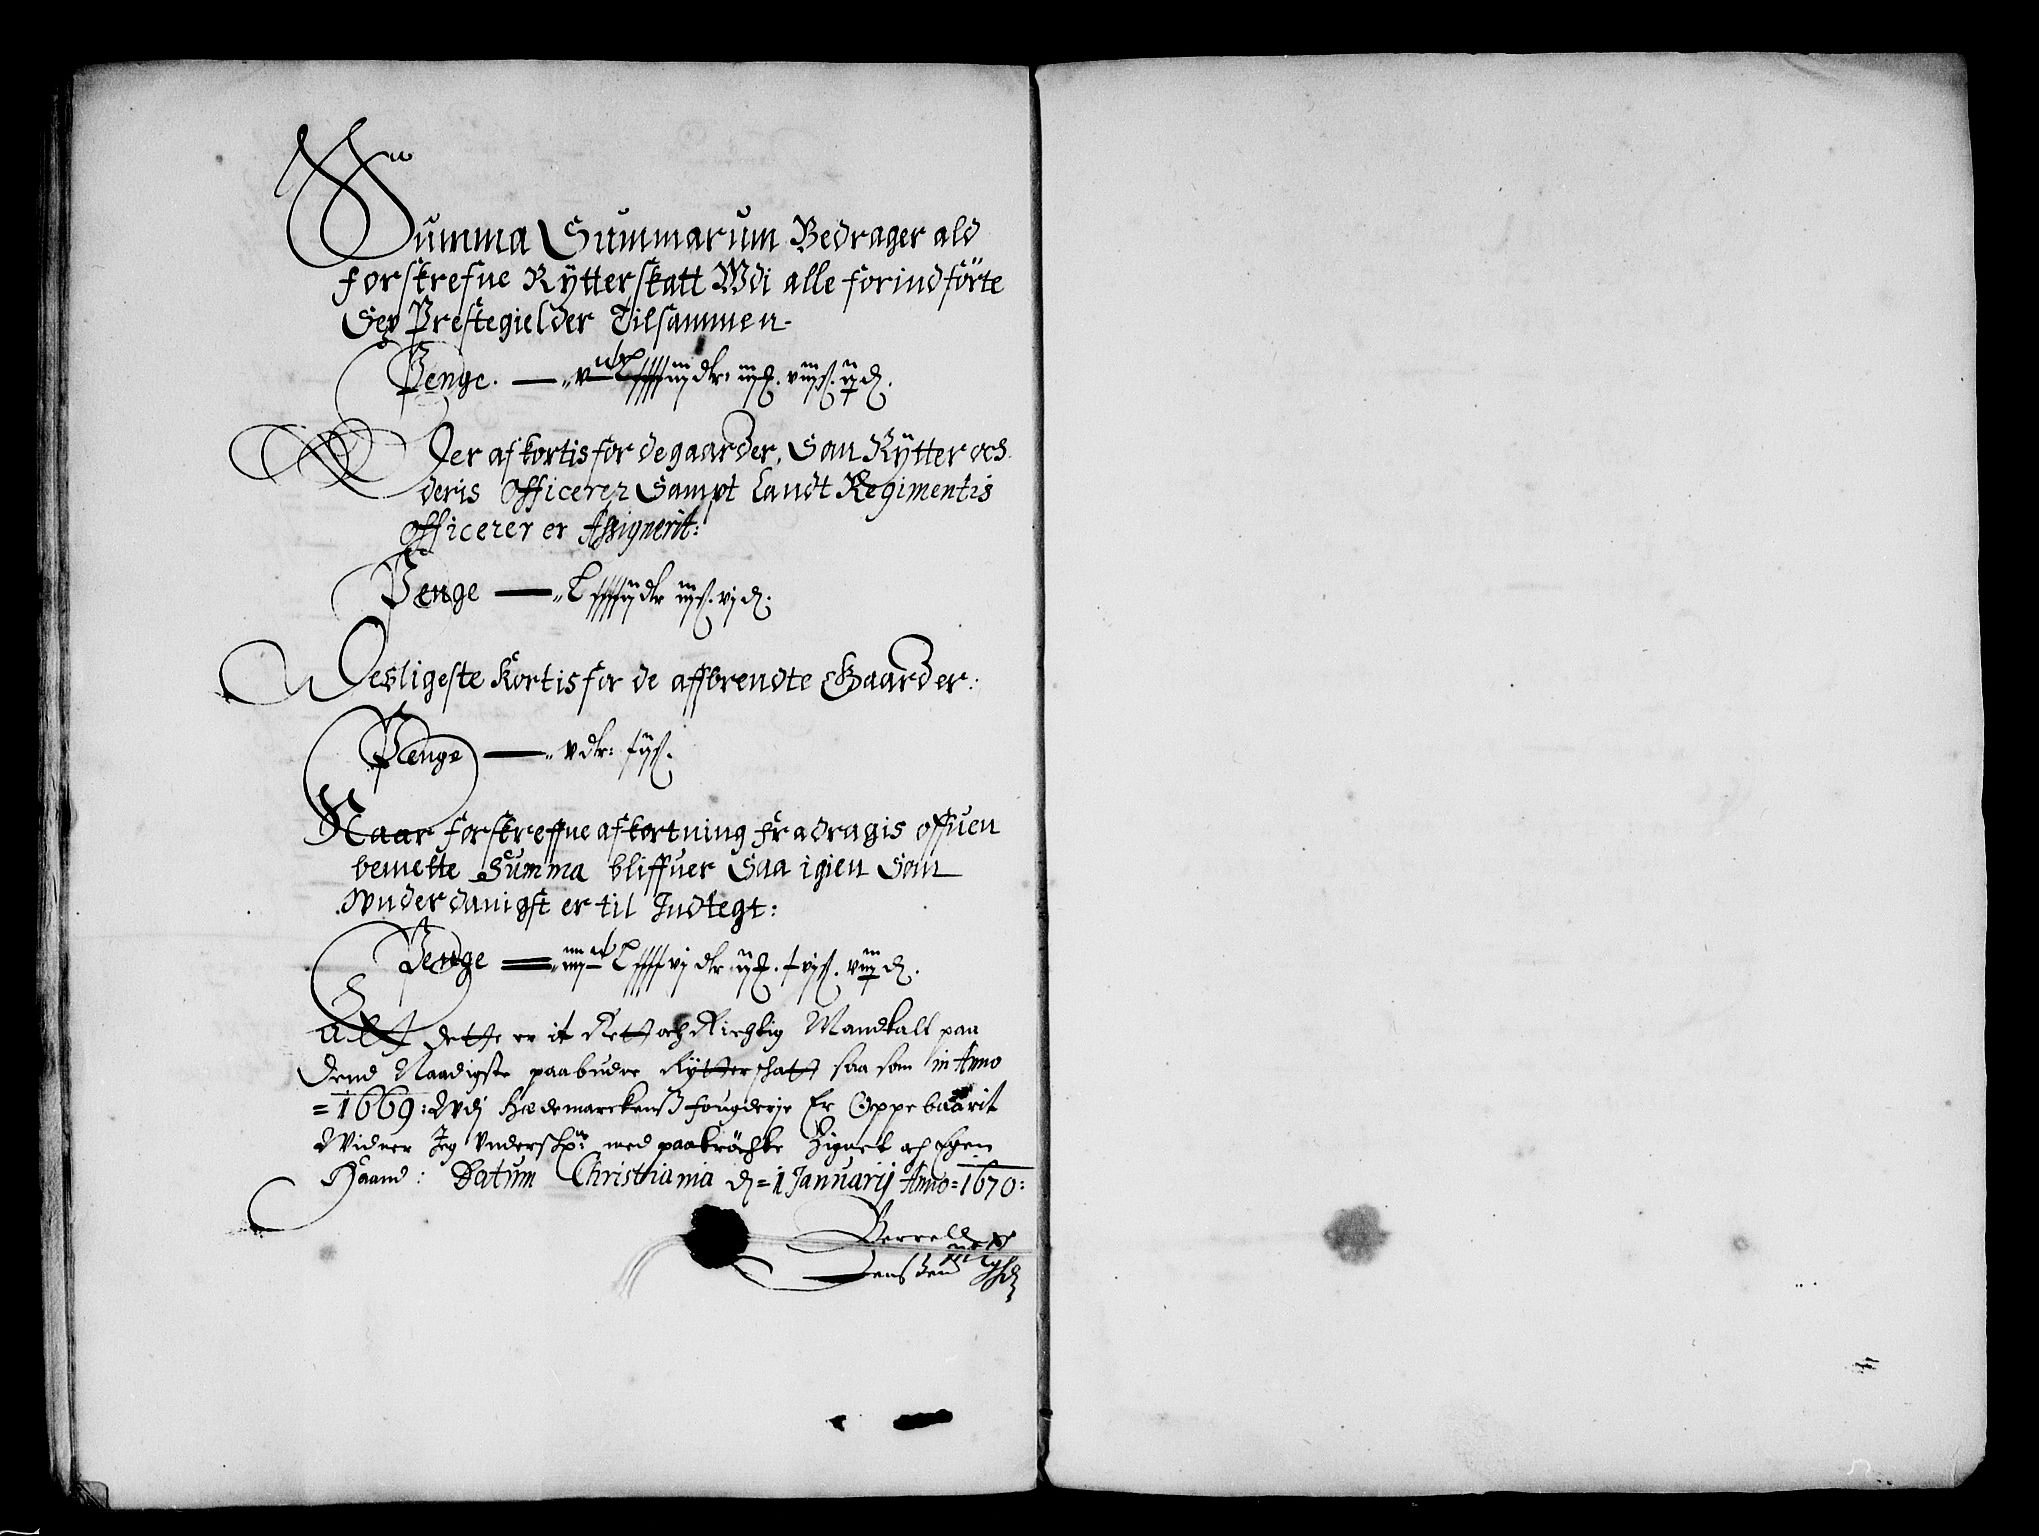 Summa Summarum Bedrager ald
forskrefne Rÿtterskatt Wdi alle forindförte
Sex Prestegielder Tilsammen
Penge.
Der afkortis for de gaarder, Som Rÿtter och
deris Officerer Sampt Landt Regimentis
officerer er Assignerit:
Penge
Desligeste Kortis for de affbrendte Gaarder:
Penge — v dlr:
Naar forskreffne afkortning Fradragis offuen
bemelte Summa bliffuer Saa igien Som
Wnderdanigst er til Indtegt:
Penge
Alt dette er it Rett och Richtig Mandtall paa
dend Naadigste paabudne Rÿtterschatt saa som in Anno
= 1669: Wdj Hedemarckens fougderje Er Oppebaarit
Widner Jeg Vnderschr: med paatröchte Zignet och Egen
Haand: Datum Christhiania d = 1 Januarij Anno = 1670:
Jensen